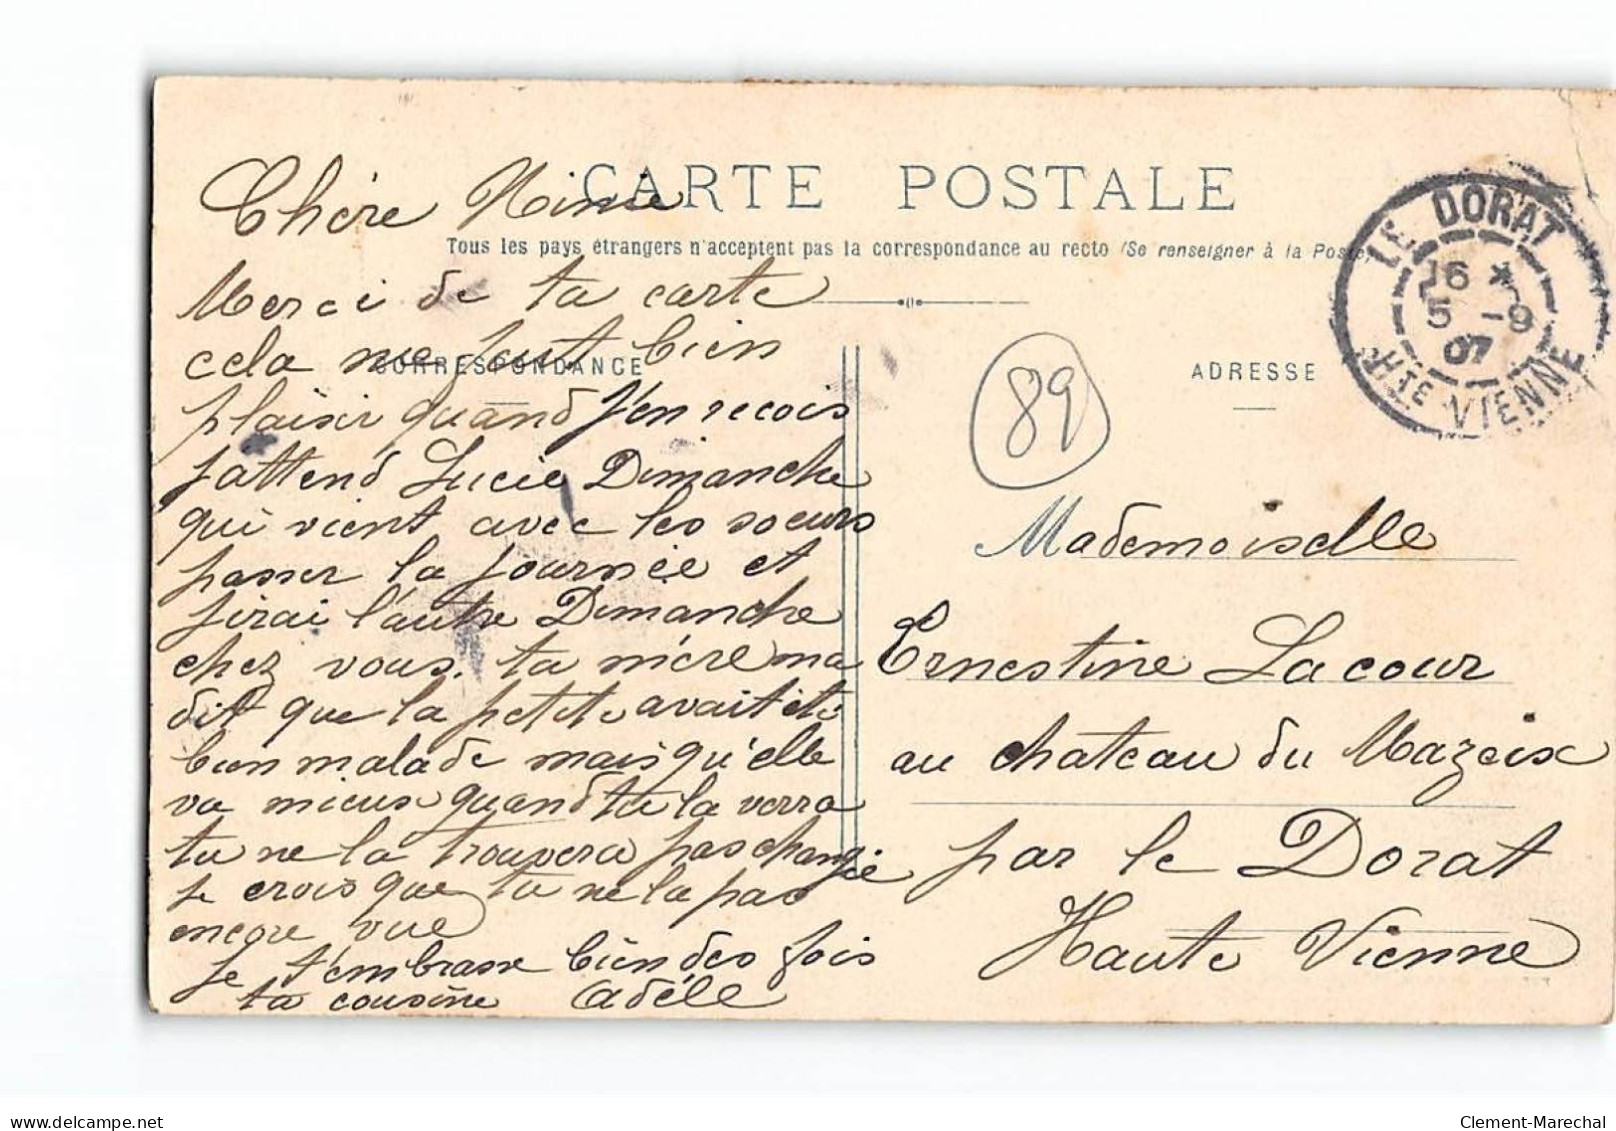 CARTE POSTALE
Tous les pays étrangers n'acceptent pas la correspondance au recto (Se renseigner à la Poste)
CORRESPONDANCE
Chère Ninie
Merci de ta carte
cela me fait bien
plaisir quand j'en recois
j'attend Lucie Dimanche
qui vient avec les soeurs
passer la journée et
j'irai l'autre Dimanche
chez vous. ta mère ma
dit que la petite avait été
bien malade mais qu'elle
va mieux quand tu la verra
tu ne la trouvera pas changée
je crois que tu ne la pas
encore vue
je t'embrasse bien des fois
ta cousine Adèle
ADRESSE
89
LE DORAT
16 *
5 -9
07
HTE VIENNE
Mademoiselle
Ernestine Lacour
au chateau du Mazeix
par le Dorat
Haute Vienne
delcampe.net
Clement-Marechal